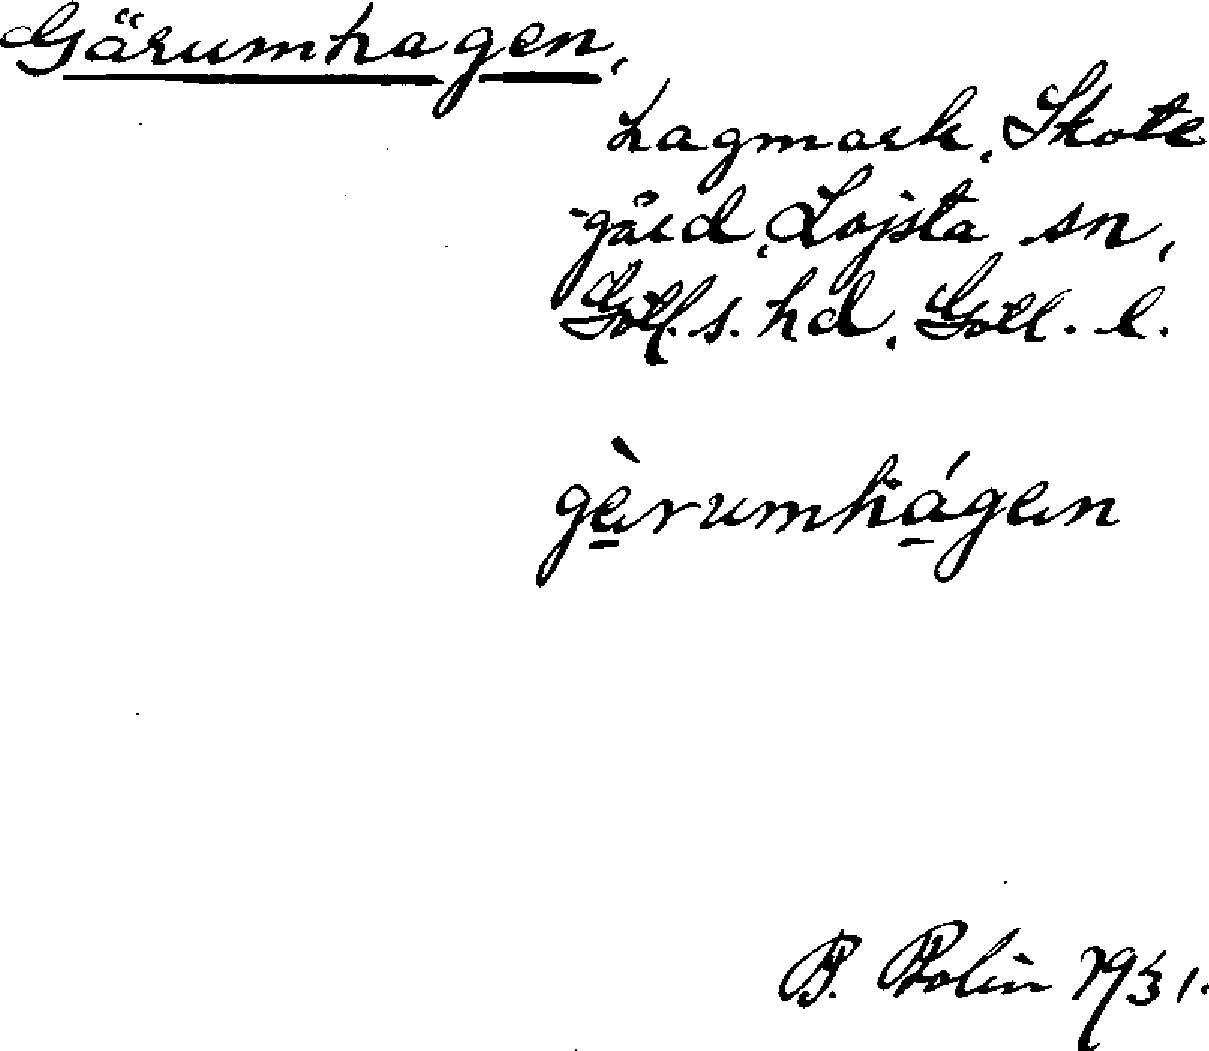 Gärumhagen,
hagmark, Skote
gård, Lojsta sn,
Gotl. s. hd, Gotl. l.
gèrumhágen
B. Bolin 1931.